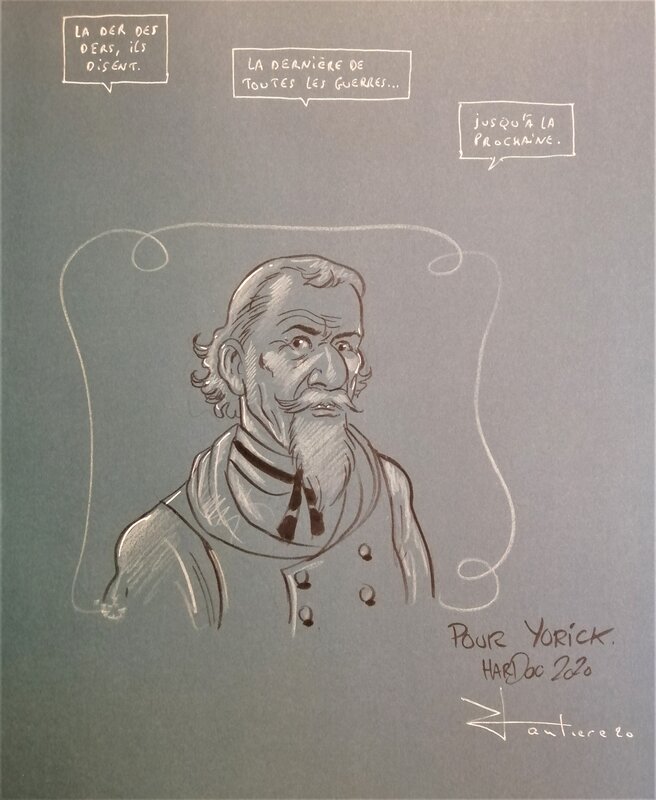 LA DER DES
DERS, ILS
DISENT.
LA DERNIÈRE DE
TOUTES LES GUERRES...
JUSQU'À LA
PROCHAINE.
POUR YORICK.
HARDOC 2020
Zantiere 20